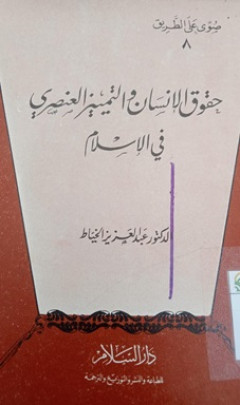 صُوًى عَلَى الطَّرِيق
٨
حقوق الإنسان والتمييز العنصري
في الإسلام
الدكتور عبد العزيز الخياط
دار السلام
للطباعة والنشر والتوزيع والترجمة